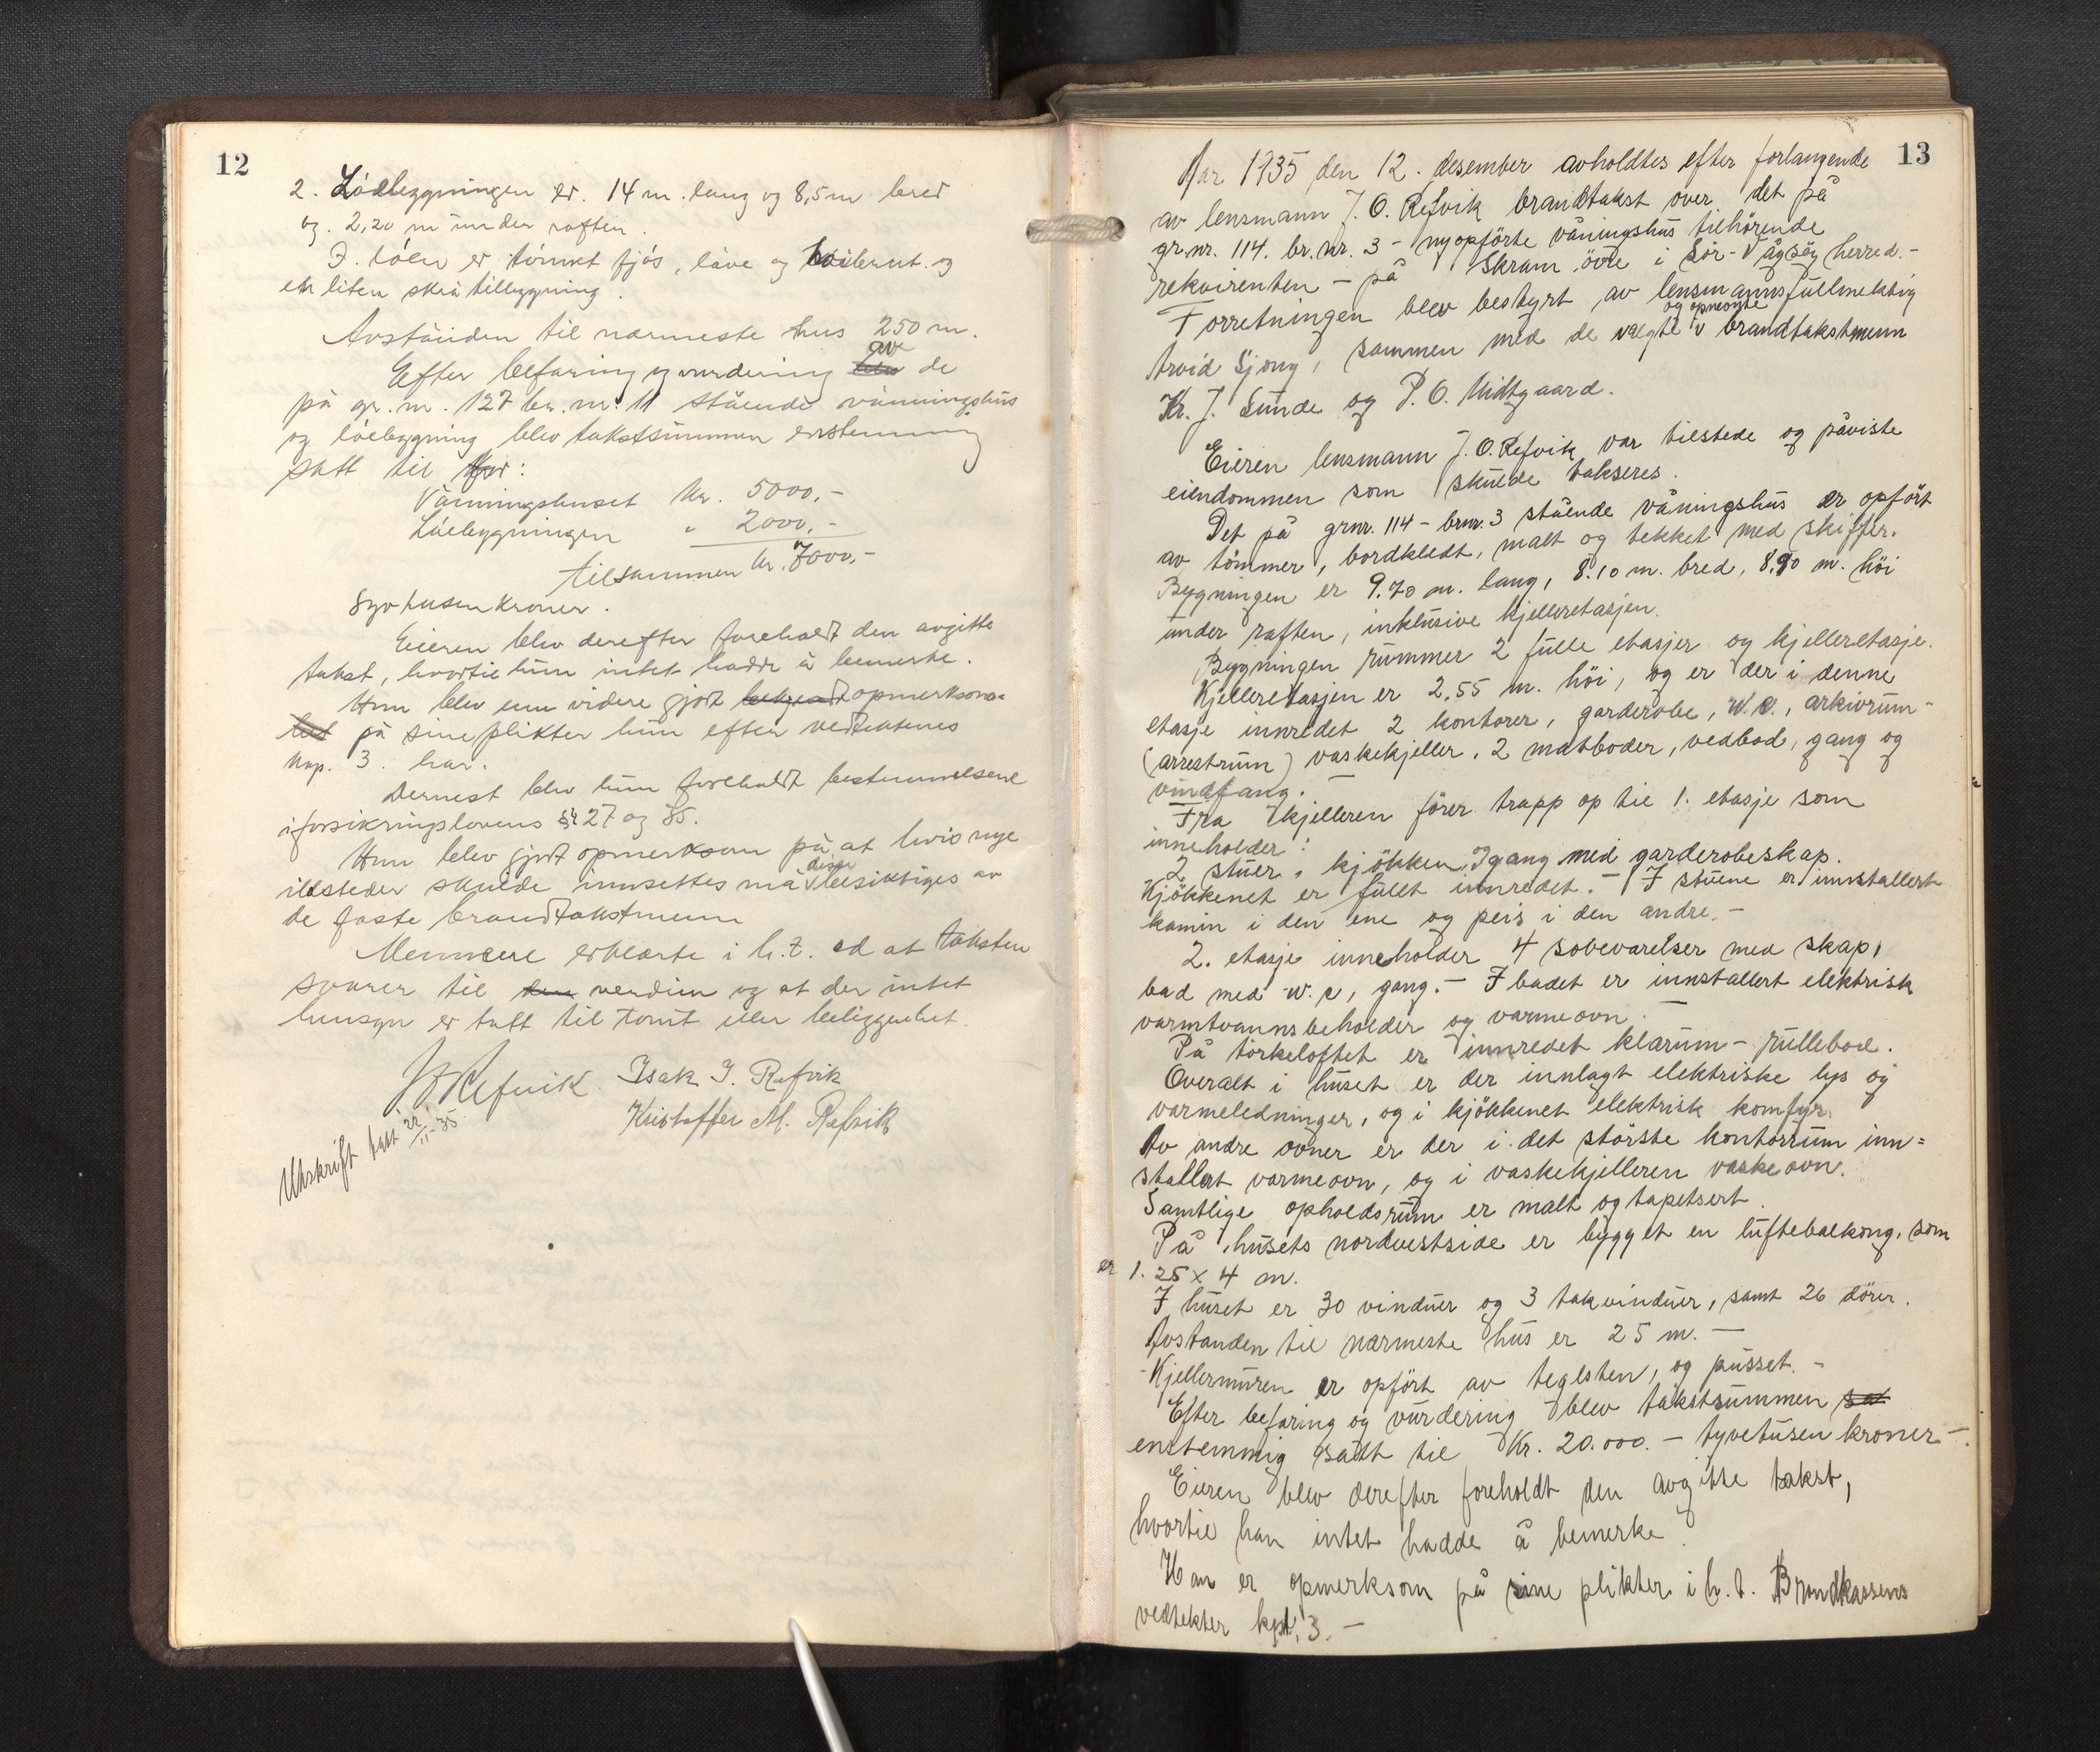 12
2. Lóebygningen er. 14 m. lang og 8,5 m bred
og. 2,20 m under raften.
I. lóen er tómret fjós, láve og
en liten skrá tilbygning.
Avstánden til nærmeste hus 250 m.
Efter befaring og vurdering av de
pá gr. nr. 127 br. nr. 11 stáende váningshus
og lóebygning blev takstsummen enstemmig
satt til for:
Váningshuset kr. 5000,-
Lóebygningen " 2000,-
tilsammen kr. 7000,-
Syvtusen kroner.
Eieren blev derefter foreholdt den avgitte
takst, hvortil hun intet hadde á bemerke.
Hun blev enn videre gjort bekjendt opmerksom-
het pá sine plikter hun efter vedtektenes
kap. 3. har.
Dernest blev hun foreholdt bestemmelsene
i forsikringslovens §§ 27 og 85.
Hun blev gjort opmerksom pá at hvis nye
ildsteder skulde innsettes má disse besiktiges av
de faste brandtakstmenn
Mennene erklærte i h.t. ed at taksten
svarer til den verdien og at der intet
hensyn er tatt til tomt eller beliggenhet.
J O Refvik Isak I. Refvik
Kristoffer M. Refvik
Utskrift tatt 22/11-35.
13
Aar 1935 den 12. desember avholdtes efter forlangende
av lensmann J. O. Refvik brandtakst over det på
gr. nr. 114. br. nr. 3 - nyopførte våningshus tilhørende
rekvirenten - på Skram øvre i Sør-Vågsøy herred.-
Forretningen blev bestyrt av lensmannsfullmektig
Arvid Sjong, sammen med de valgte og opnevnte v brandtakstmenn
Kr. J. Sunde og P. O. Midtgaard.
Eieren lensmann J. O. Refvik var tilstede og påviste
eiendommen som skulde takseres.
Det på grnr. 114 - brnr. 3 stående våningshus er opført
av tømmer, bordkledt, malt og tekket med skiffer.
Bygningen er 9.70 m. lang, 8.10 m. bred, 8.90 m. høi
under raften, inklusive kjelleretasjen.
Bygningen rummer 2 fulle etasjer og kjelleretasje.
Kjelleretasjen er 2,55 m. høi, og er der i denne
etasje innredet 2 kontorer, garderobe, W.C., arkivrum-
(arrestrum) vaskekjeller, 2 matboder, vedbod, gang og
vindfang.
Fra kjelleren fører trapp op til 1. etasje som
inneholder:
2 stuer, kjøkken, gang med garderobeskap.
Kjøkkenet er fullt innredet. - I stuene er innstallert
kamin i den ene og peis i den andre. -
2. etasje inneholder 4 soveværelser med skap,
bad med w.c, gang. - I badet er innstallert elektrisk
varmtvannsbeholder og varmeovn.
På tørkeloftet er innredet klærum - rullebod.
Overalt i huset er der innlagt elektriske lys og
varmeledninger, og i kjøkkenet elektrisk komfyr.
Av andre ovner er der i det største kontorrum inn=
stallert varmeovn, og i vaskekjelleren vaskeovn.
Samtlige opholdsrum er malt og tapetsert.
På husets nordvestside er bygget en luftebalkong, som
er 1.25 x 4 m.
I huset er 30 vinduer og 3 takvinduer, samt 26 dører.
Avstanden til nærmeste hus er 25 m. -
Kjellermuren er opført av teglsten, og pusset. -
Efter befaring og vurdering blev takstsummen sat
enstemmig satt til Kr. 20.000. - tyvetusen kroner -.
Eieren blev derefter foreholdt den avgitte takst,
hvortil han intet hadde å bemerke.
Han er opmerksom på sine plikter i h.t. Brandkassens
vedtekter kpt. 3. -